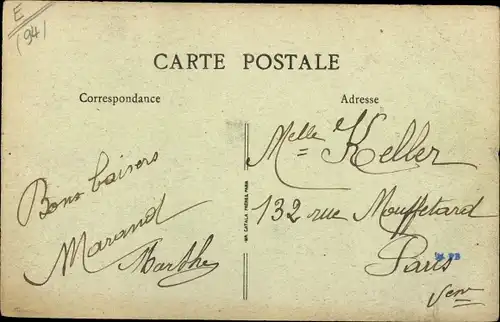 E
(94)
CARTE POSTALE
Correspondance
Adresse
Bons baisers
Marand
Marthe
IMP. CATALA FRÈRES, PARIS
Melle Keller
132 rue Mouffetard
Paris